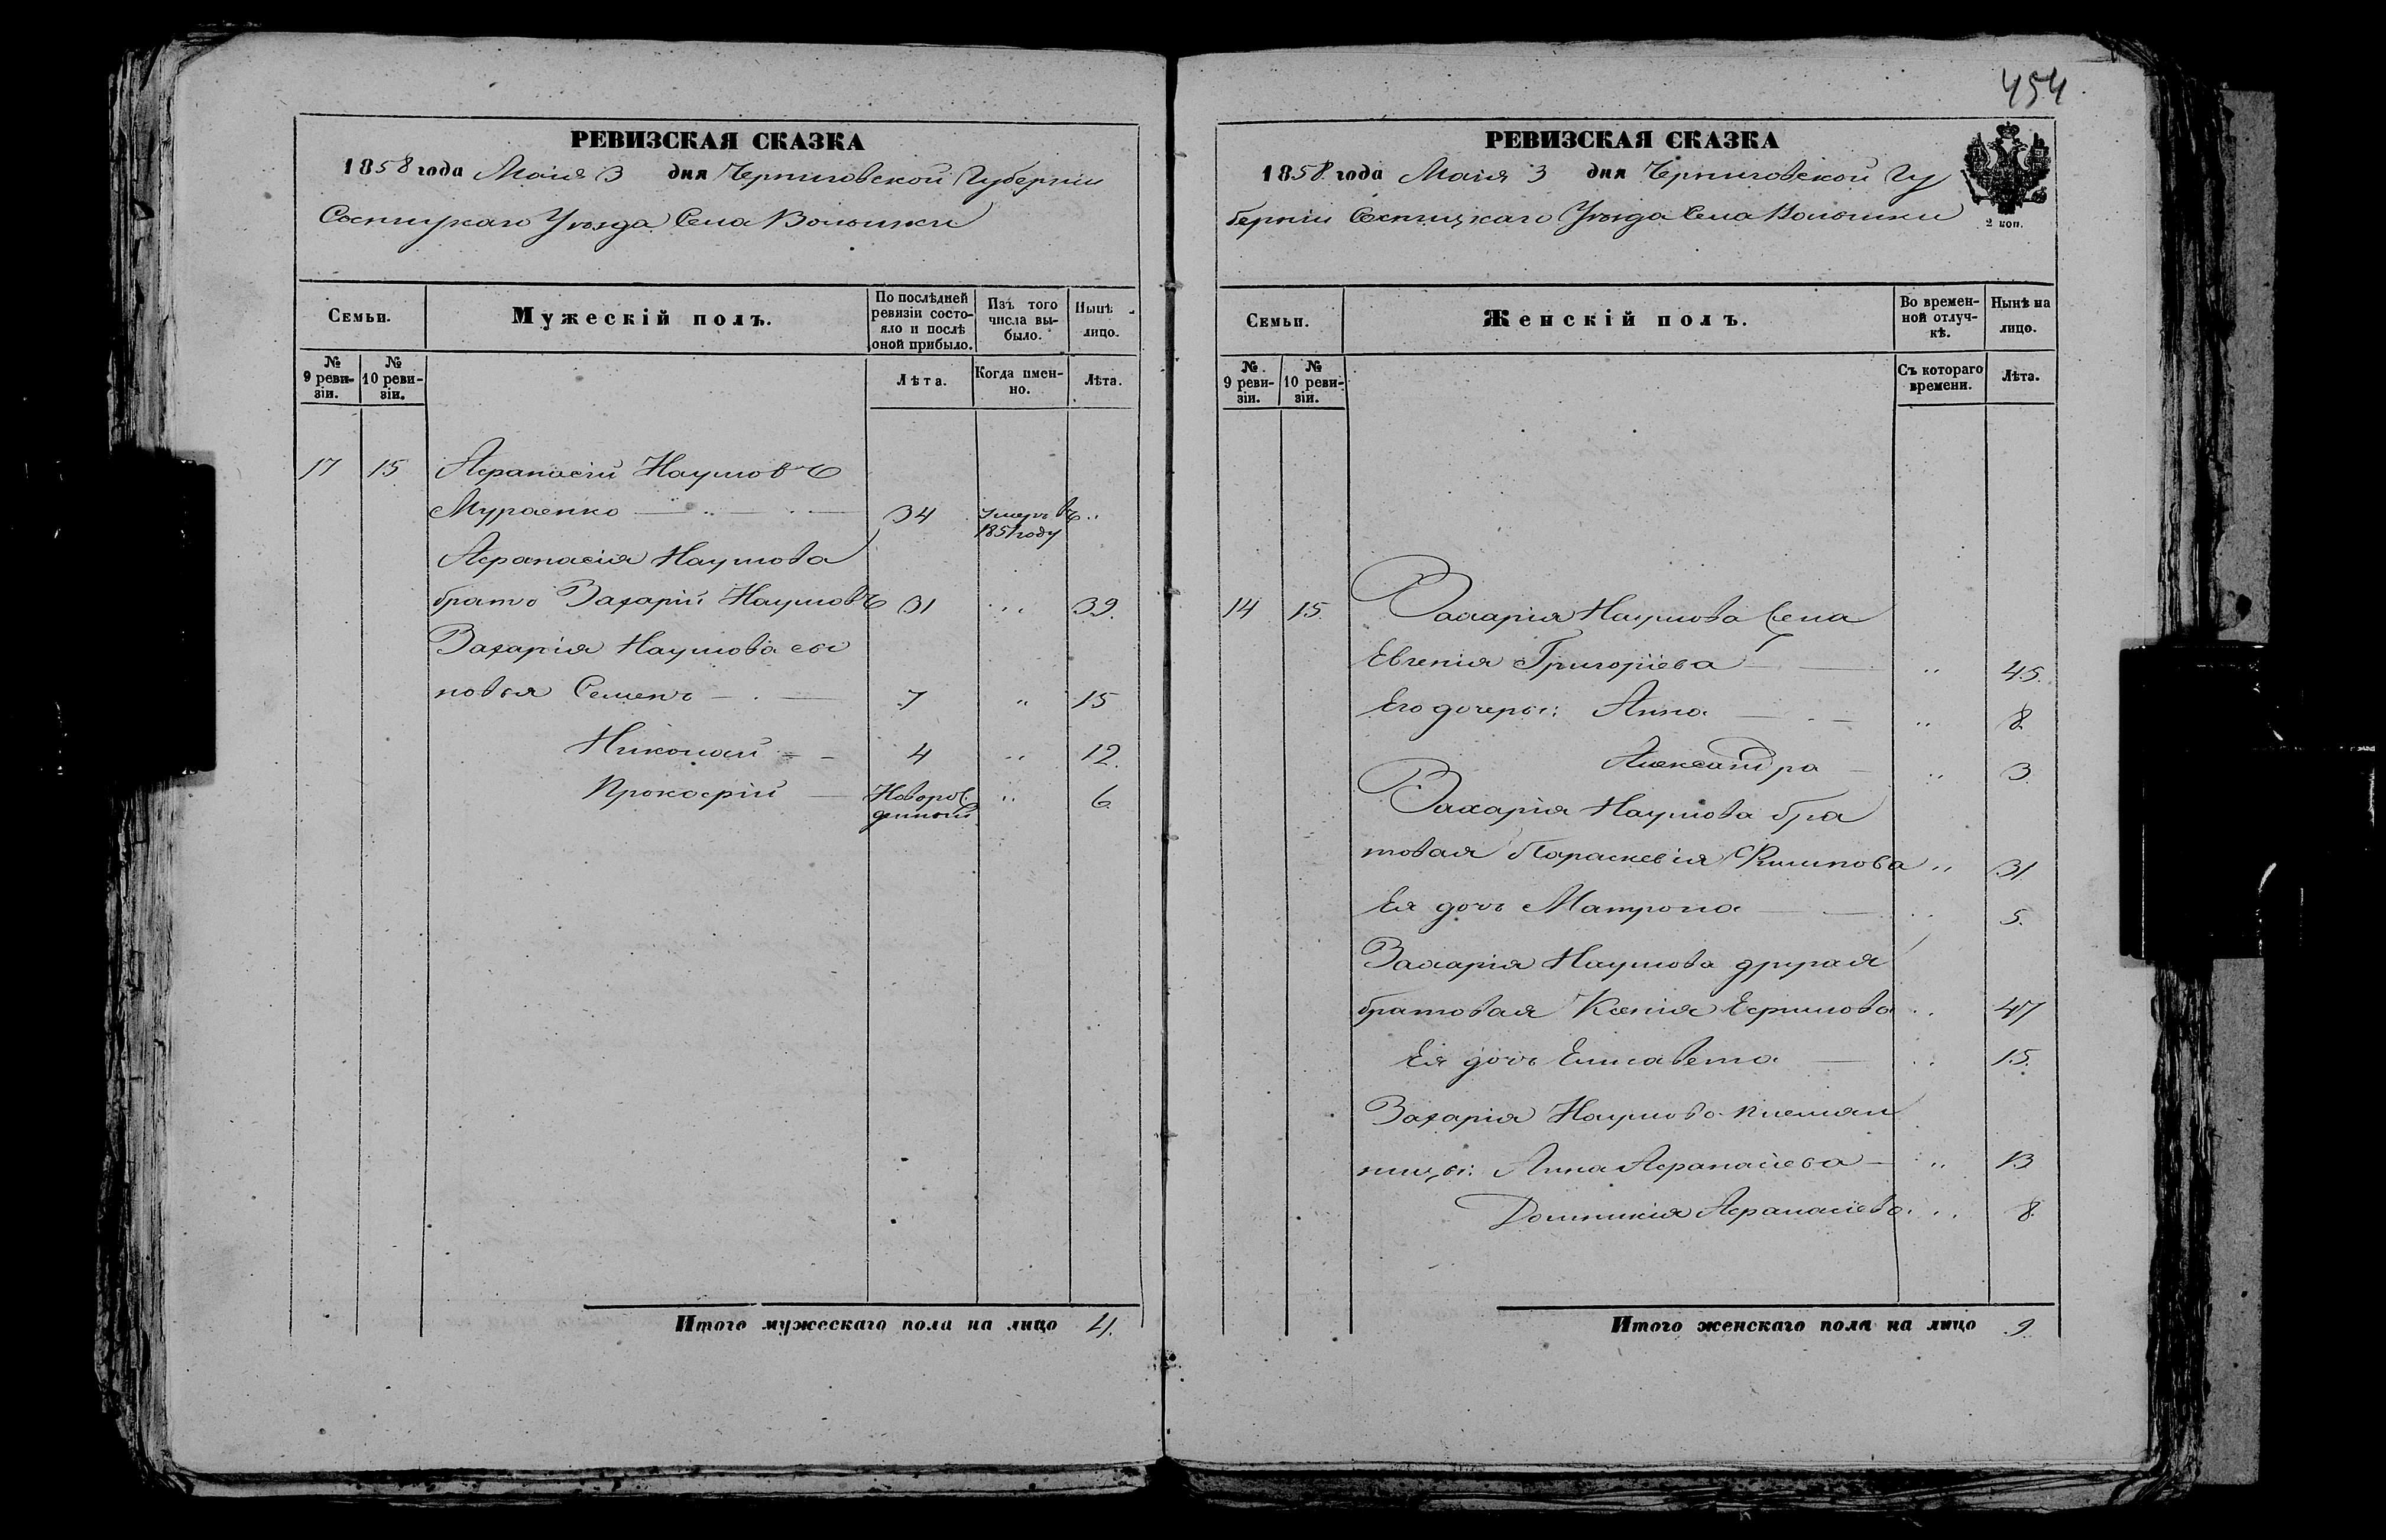 454
РЕВИЗСКАЯ СКАЗКА
1858 года Маія 3 дня Черниговской Губерніи
Сосницкаго Уезда Села Волынки
Семьи.
Мужескій полъ.
По послѣдней ревизіи состояло и послѣ оной прибыло.
Изъ того числа выбыло.
Нынѣ лицо.
№ 9 ревизіи.
№ 10 ревизіи.
Лѣта.
Когда именно.
Лѣта.
17 15 Афанасій Наумовъ
Мураенко 34 Умеръ въ 1851 году „
Афанасія Наумова
братъ Захарій Наумовъ 31 „ 39.
Захарія Наумова сы
новья Семенъ 7 „ 15
Николай 4 „ 12.
Прокофій Новорожденный „ 6
Итого мужескаго пола на лицо 4.
РЕВИЗСКАЯ СКАЗКА
1858 года Маія 3 дня Черниговской Гу
берніи Сосницкаго Уезда Села Волынки
2 коп.
Семьи.
Женскій полъ.
Во временной отлучкѣ.
Нынѣ на лицо.
№ 9 ревизіи.
№ 10 ревизіи.
Съ котораго времени.
Лѣта.
14 15. Захарія Наумова Жена
Евгенія Григоріева „ 45.
Его дочеры: Анна „ 8
Александра „ 3.
Захарія Наумова бра
товая Параскевія Филипова „ 31.
Ея дочь Матрона „ 5.
Захарія Наумова другая
братовая Ксенія Ефимова „ 47
Ея дочь Елисавета „ 15.
Захарія Наумова племян
ницы: Анна Афанасіева „ 13
Домникія Афанасіева „ 8.
Итого женскаго пола на лицо 9.